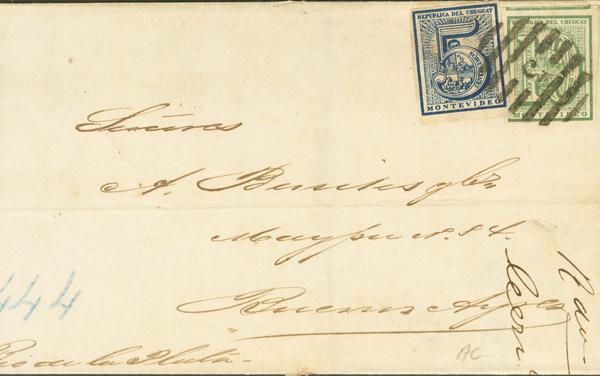 REPUBLICA DEL URUGUAY
5
MONTEVIDEO
REPUBLICA DEL URUGUAY
MONTEVIDEO
Señores
A. Benites y Cia
Maypu N. 84.
Buenos Ayres
444
Rio de la Plata
AC